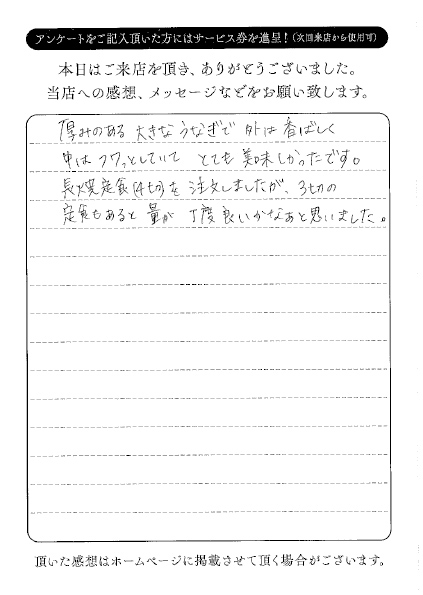 アンケートをご記入頂いた方にはサービス券を進呈!(次回来店から使用可)
本日はご来店を頂き、ありがとうございました。
当店への感想、メッセージなどをお願い致します。
厚みのある 大きなうなぎで 外は香ばしく
中はフワっとしていて とても 美味しかったです。
長焼定食(4切)を 注文しましたが、3切の
定食もあると 量が 丁度良いかなあと思いました。
頂いた感想はホームページに掲載させて頂く場合がございます。